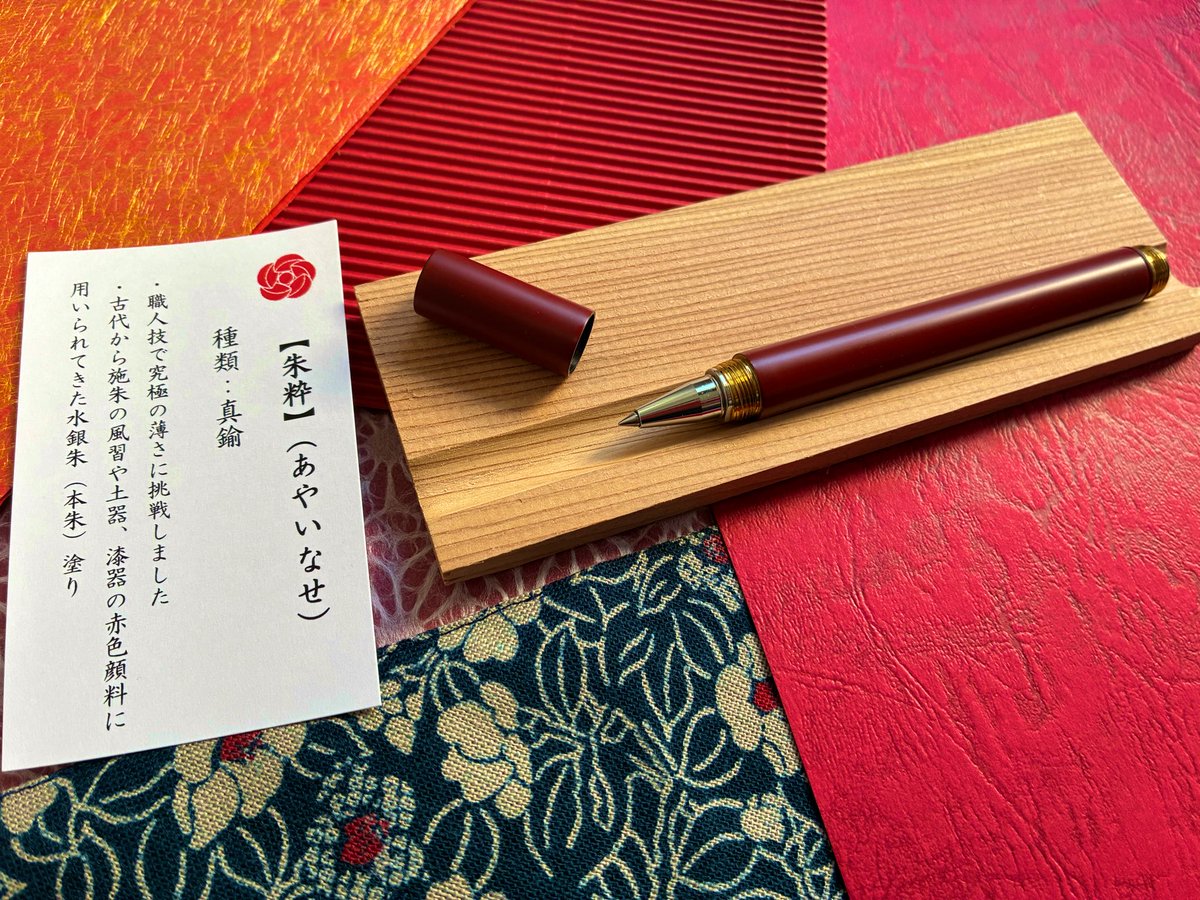 【朱粋】（あやいなせ）
種類：真鍮
・職人技で究極の薄さに挑戦しました
・古代から施朱の風習や土器、漆器の赤色顔料に
用いられてきた水銀朱（本朱）塗り